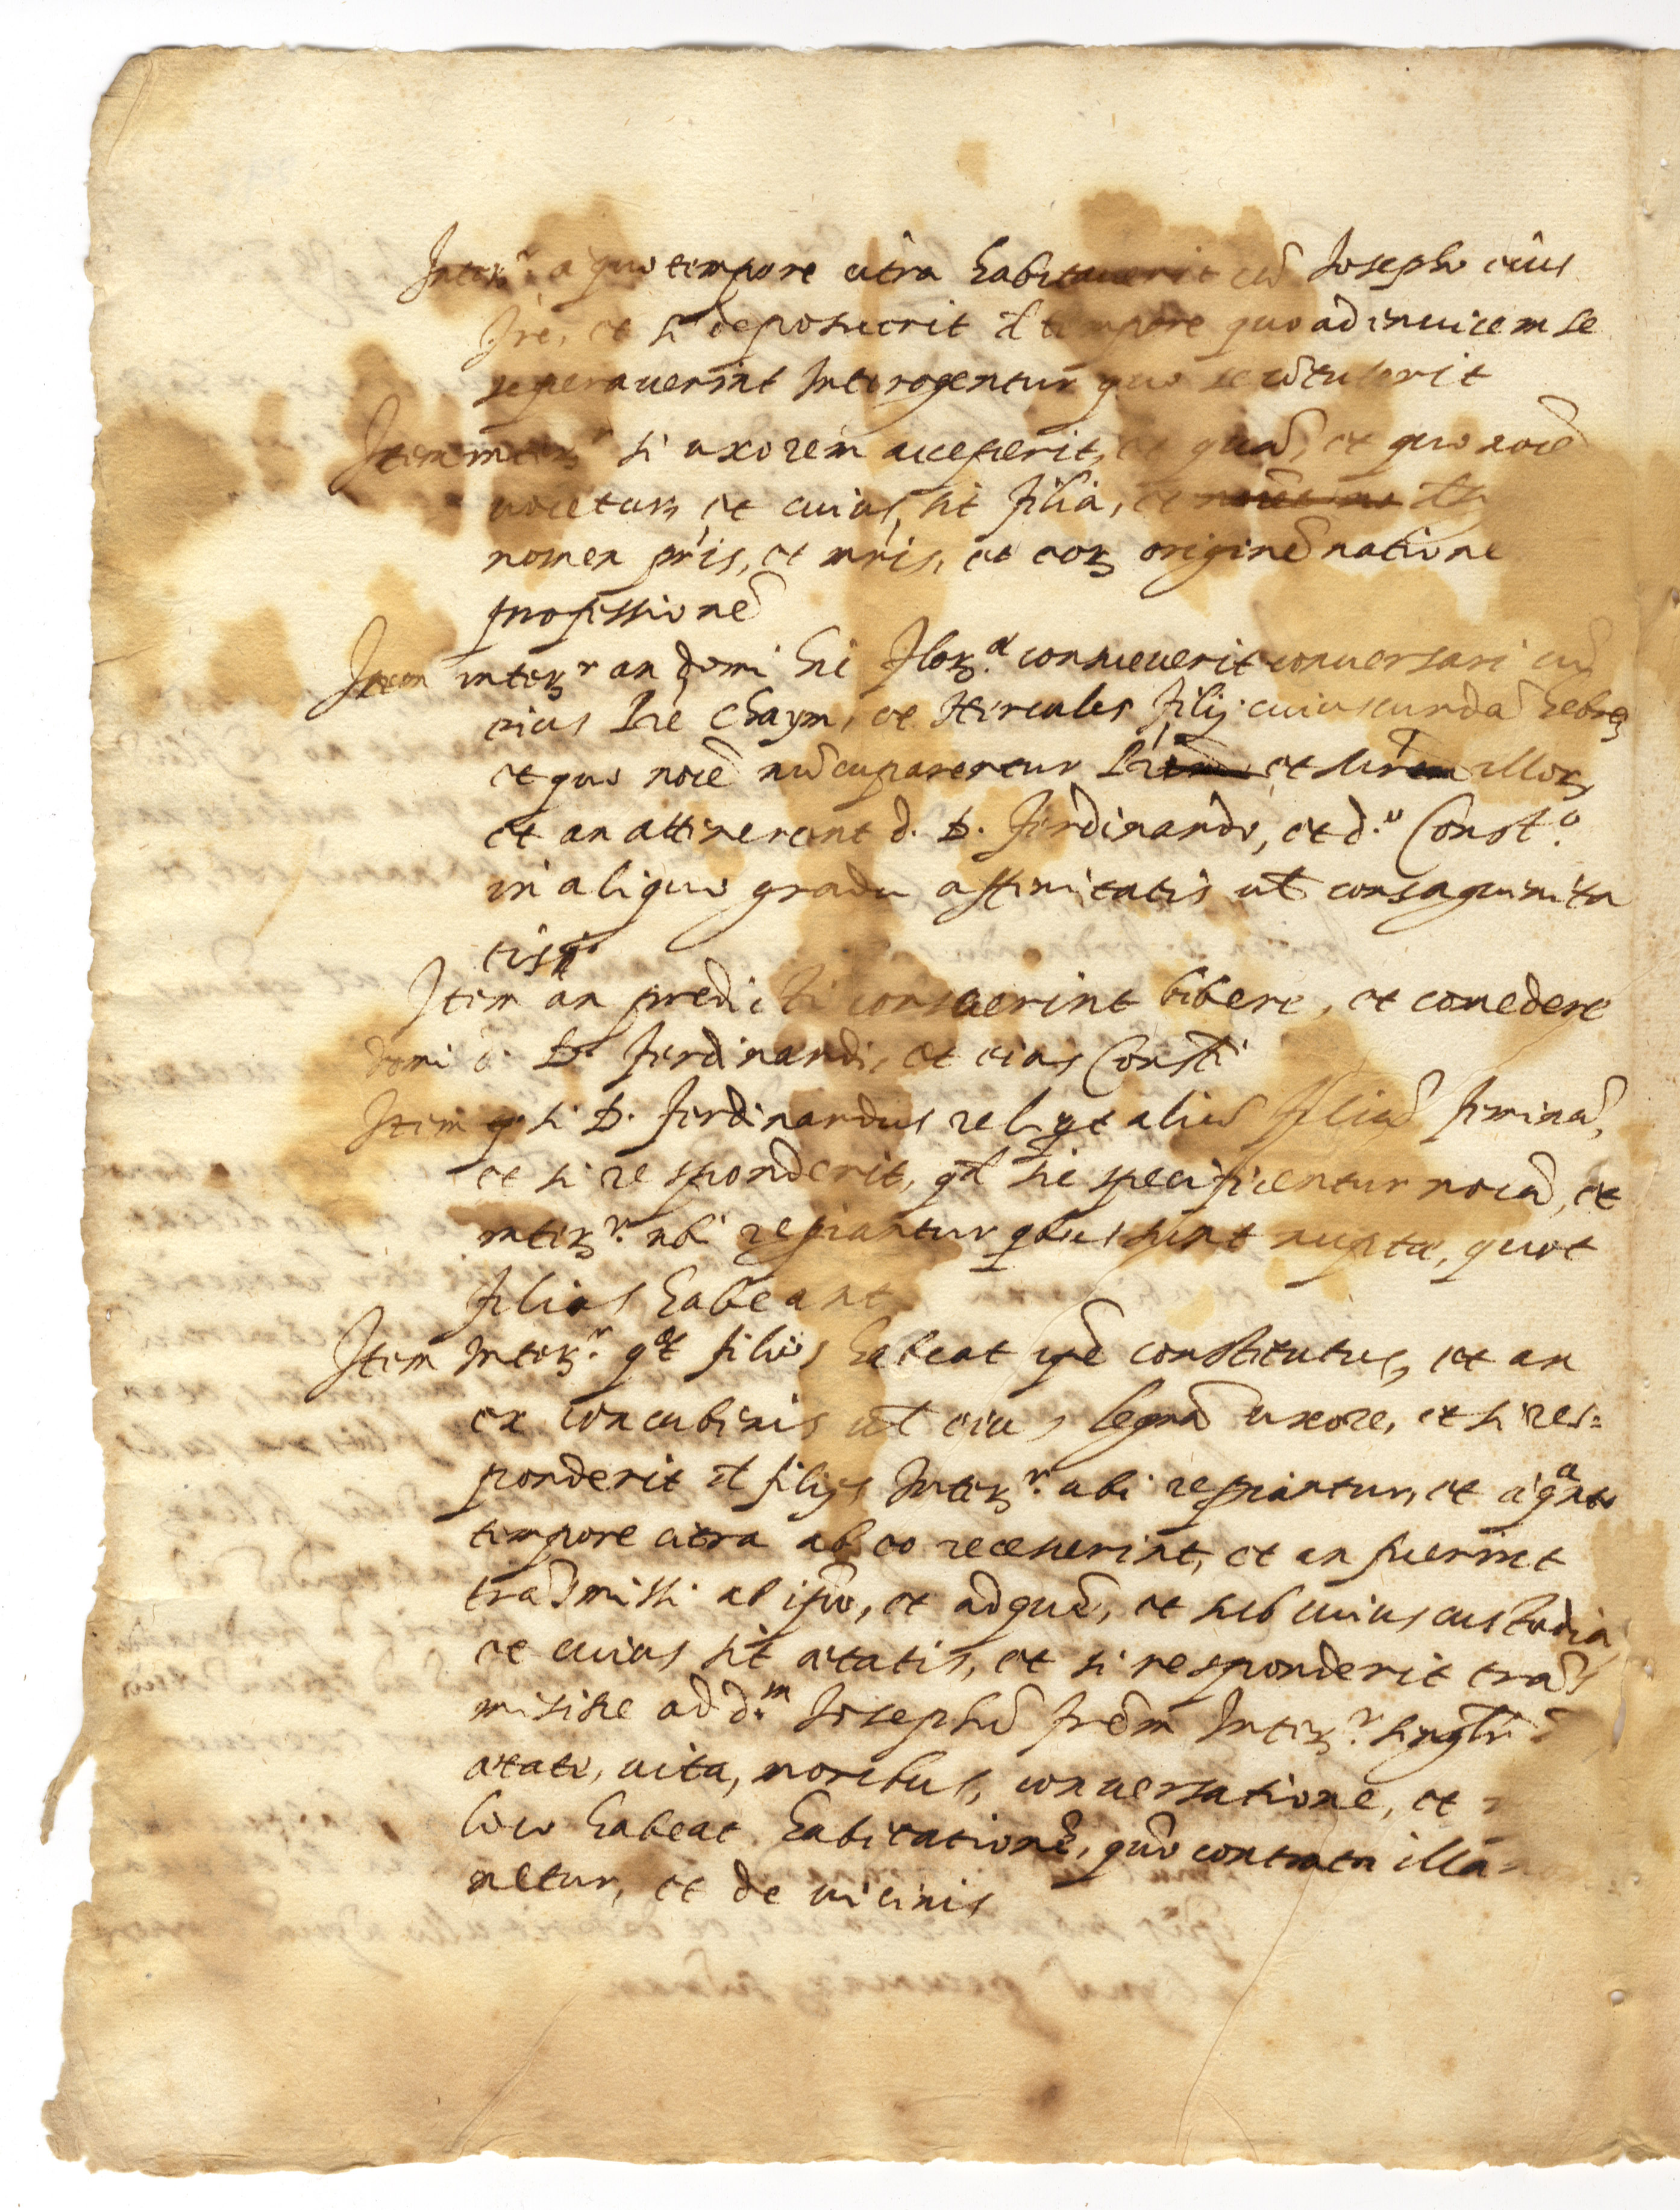 Interr. a quo tempore citra habitauerit cũ Joseph eius
fre, et si deposuerit tempore quo ad inuicem se
seperauerint Interogentur quo se cõtulerit
Item interr si uxorem acceperit, et quã, et quo noie
uocetur, et cuius sit filia, et
nomen pris, et mris, et eor originẽ natione
professionẽ
Item interr an domi consueuerit conuersari cũ
eius Chaym, et Hercules filij cuiuscundã hebrei
et quo noiẽ nũcuparentur et illor
et an attinerent d. D. ferdinando, et d.º Const.º
in aliquo gradu affinitatis ul consaguinita
tis
Item an predicti consueuerint bibere, et comedere
domi d. D. ferdinandi, et eius Consti
Item si D. ferdinandus aliã filiã feminã,
et si responderit, qd sic specificentur noia, et
interr. ubi repiantur qbus sint nuptæ, quot
filios habeant
Item Interr. qt filios habeat ipse constitutus, et an
ex concubinis ul eius legmã uxore, et si res=
ponderit filijs Interr. ubi repiantur, et a qnto
tempore citra ab eo recesserint, et an fuerint
trãsmissi ab ipso, et ad quẽ, et sub cuius custodia
et cuius sit ætatis, et si responderit trãs
misisse ad d.m Josephũ frẽm Interr.
ætate, uita, moribus, conuersatione, et
loco habeat habitationẽ, quo contrata illa
netur, et de uicinis